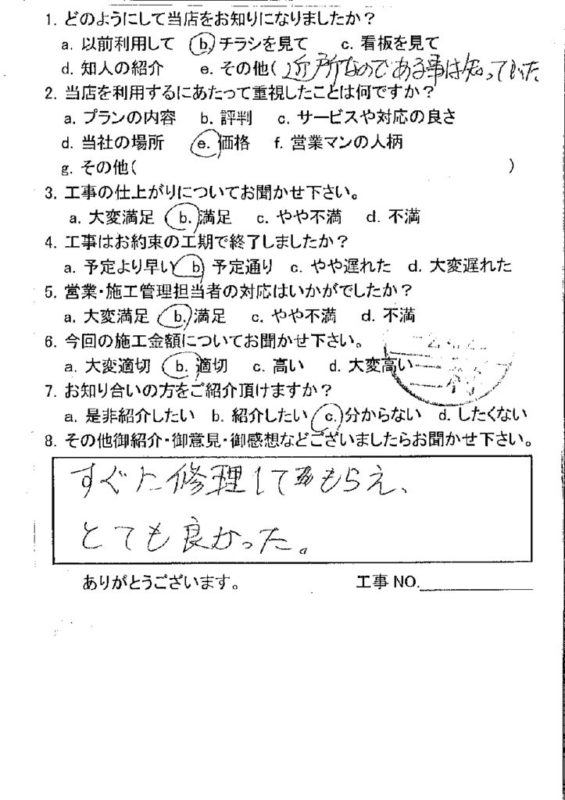 1. どのようにして当店をお知りになりましたか？
a. 以前利用して b. チラシを見て c. 看板を見て
d. 知人の紹介 e. その他( 近所なのである事は知っていた
2. 当店を利用するにあたって重視したことは何ですか？
a. プランの内容 b. 評判 c. サービスや対応の良さ
d. 当社の場所 e. 価格 f. 営業マンの人柄
g. その他( )
3. 工事の仕上がりについてお聞かせ下さい。
a. 大変満足 b. 満足 c. やや不満 d. 不満
4. 工事はお約束の工期で終了しましたか？
a. 予定より早い b 予定通り c. やや遅れた d. 大変遅れた
5. 営業・施工管理担当者の対応はいかがでしたか？
a. 大変満足 b. 満足 c. やや不満 d. 不満
6. 今回の施工金額についてお聞かせ下さい。
a. 大変適切 b. 適切 c. 高い d. 大変高い
7. お知り合いの方をご紹介頂けますか？
a. 是非紹介したい b. 紹介したい c. 分からない d. したくない
8. その他御紹介・御意見・御感想などございましたらお聞かせ下さい。
すぐに修理してもらえ、
とても良かった。
ありがとうございます。 工事 NO.